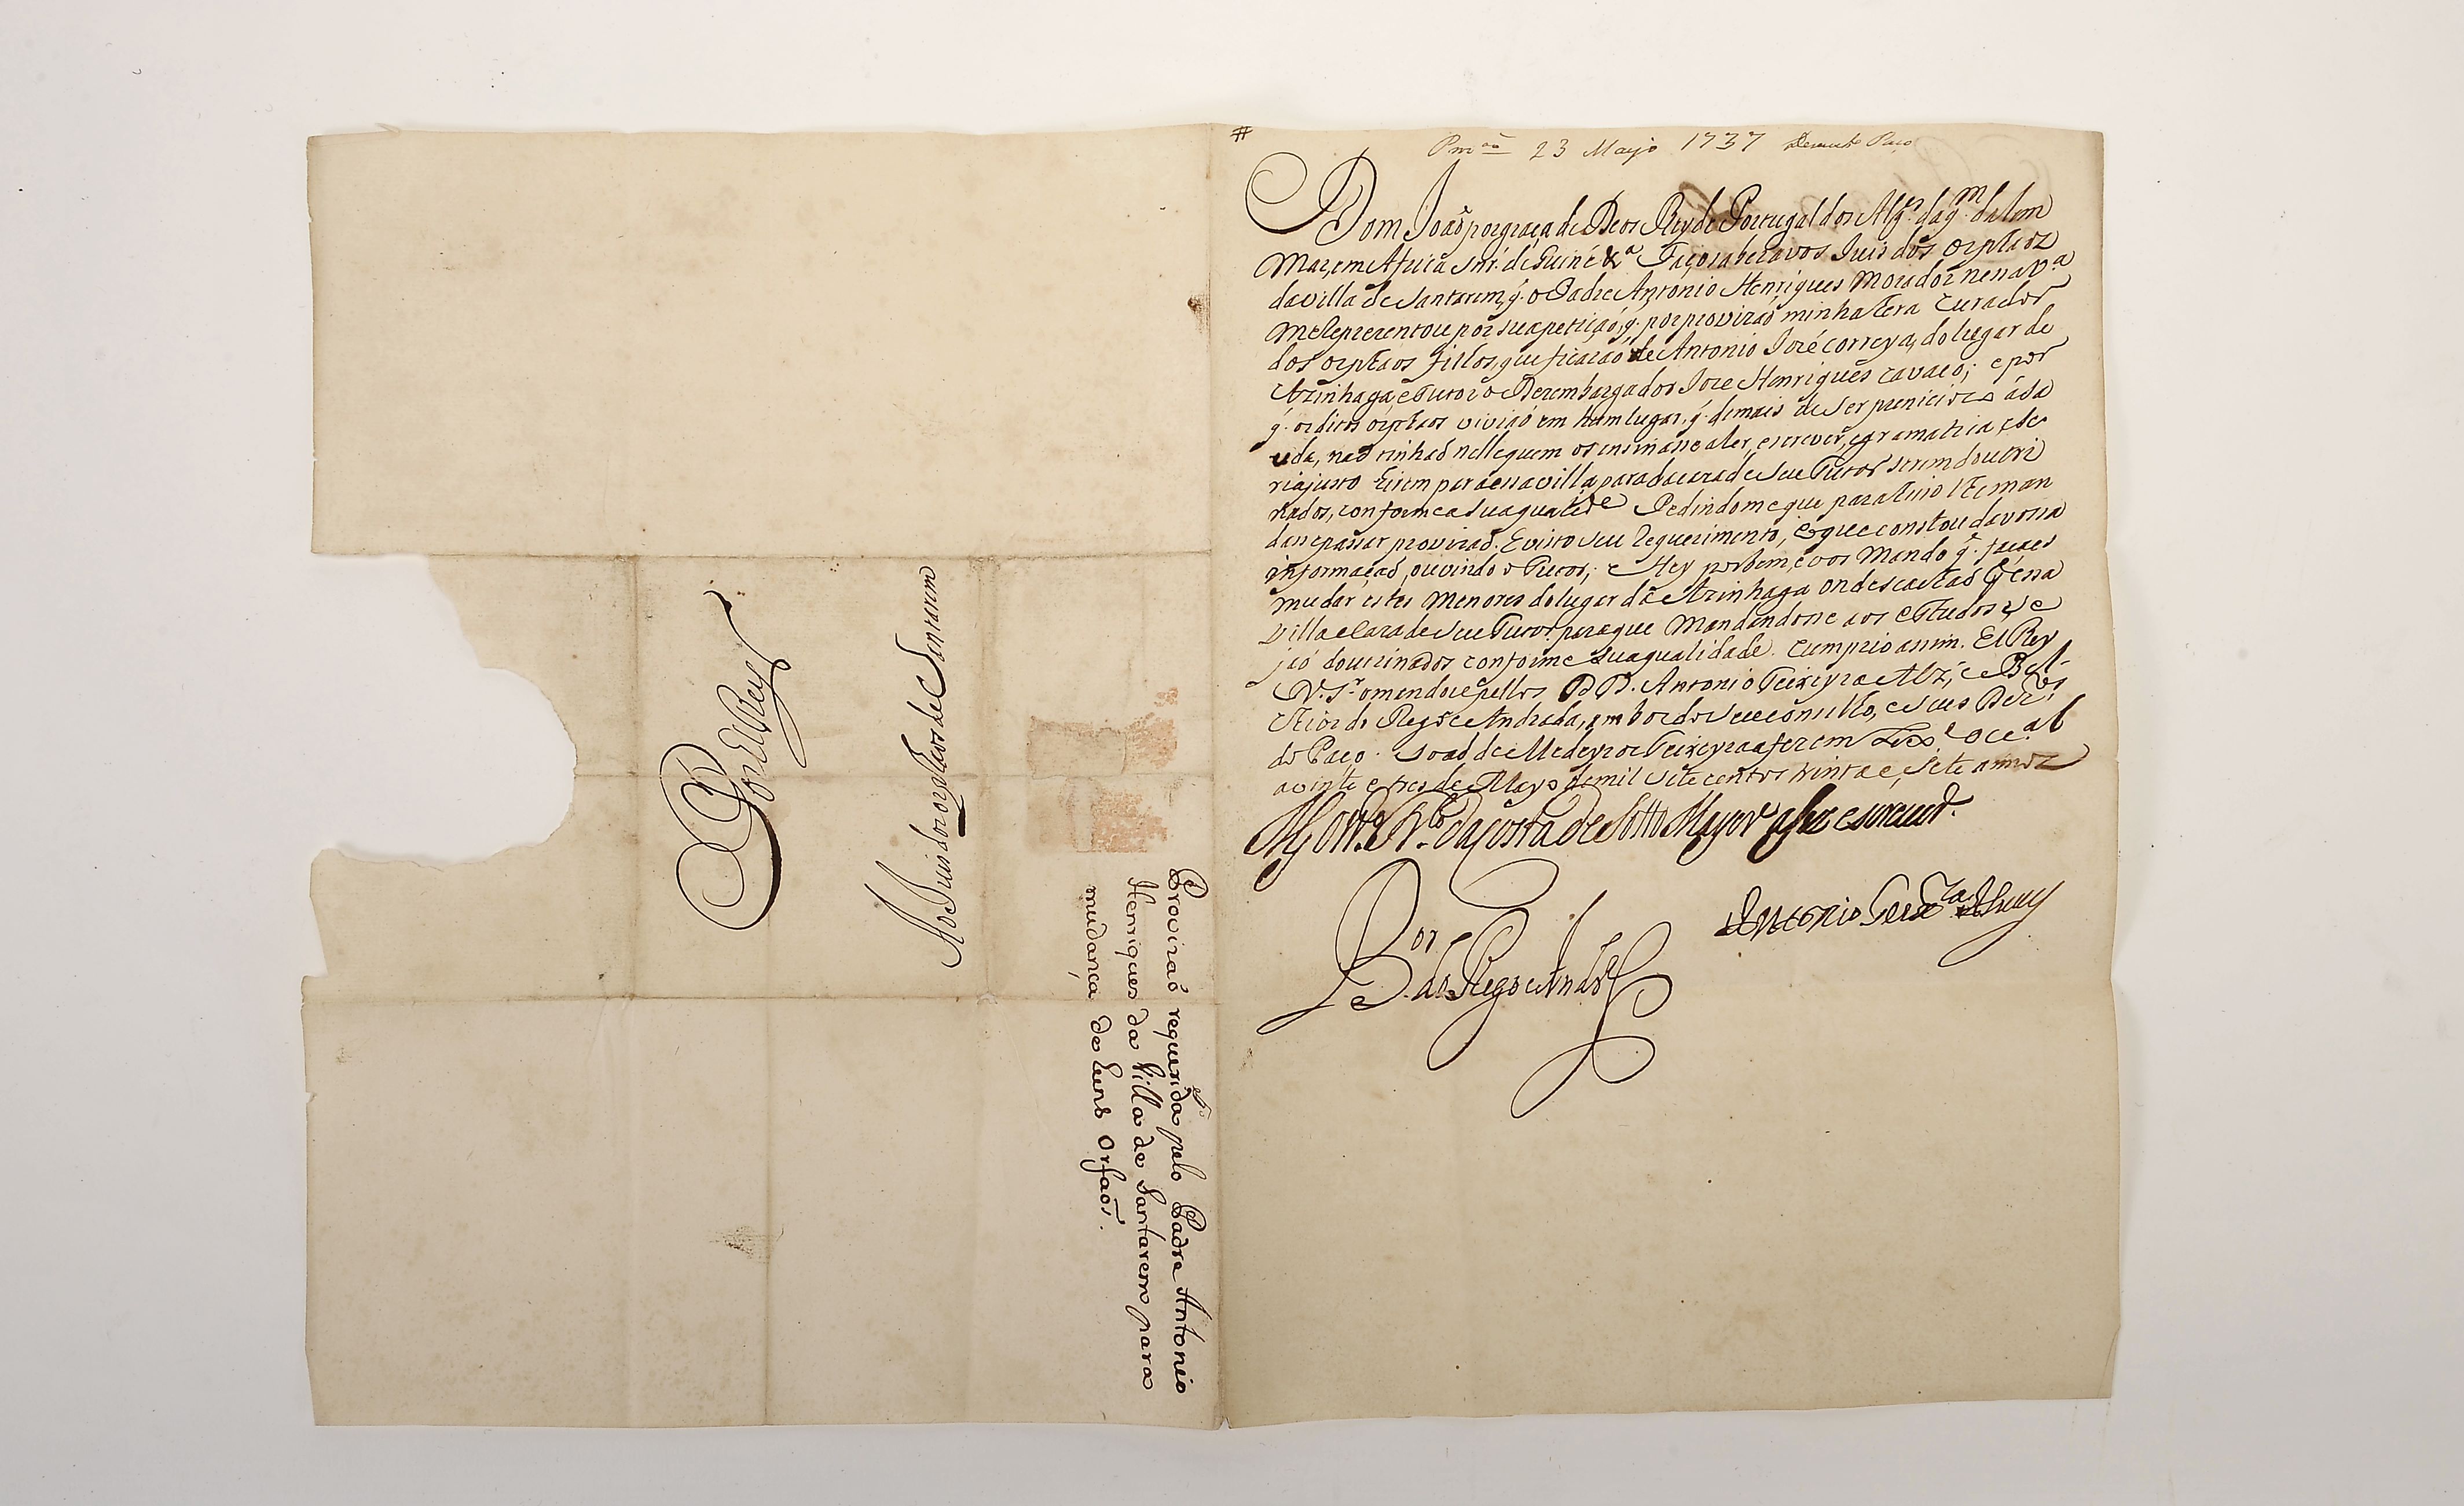 #
Pm.ão 23 Mayo 1737 Paço
Dom João por graça de Deos Rey de Portugal dos Alg.es daq.m dalem
Mar, em Africa Snr. de Guiné &.a Faço saber a vos Iuis dos orphaos
da villa de Santarem, q. o Padre Antonio Henriques Morador nessa v.a
Me Reprezentou por sua petição, q. por provizão minha Curador
dos orphãos filhos, que ficarão de Antonio Iozé correya, do lugar de
Azinhaga, e Tutor o Dezembargador Ioze Henriques cavaco; e por
q. os ditos orphãos vivião em hum lugar, q. demais de ser áda
vida, não tinhão nelle quem os ensinasse a ler, escrever, e gramatica, e se
ria justo hirem para essa villa para a caza de seu Tutor serem doutri
nados, conforme a sua qualid.e Pedindome que para isso lhe man
dasse passar provizão. E visto seu Requerimento, e o que constou da vossa
informação, ouvindo o Tutor; Hey por bem, e vos Mando q. façaes
mudar estes Menores do lugar da Azinhaga onde se achão p.a essa
villa e caza de seu Tutor, para que Mandandose aos estudos, se
jão doutrinados conforme sua qualidade. Cumprio assim. El Rey
N. S.r o mandou pellos D D. Antonio Teixeyra Alz', e Bel-
chior do Rego e Andrada, ambos do seu consilho, e seus Dez.es
do Paço. Ioão de Medeyros Teixeyra a fez em Lix.a occ.al
a vinte e tres de Mayo de mil sete centos trinta e sete annos
da Costa de Sotto Mayor a fez escreuer.
Antonio Teix.ra Alvrez
Bor
do Rego e Andr.e
Por ElRey
Ao Iuis dos orphãos de Santarem
Provizão requerida pelo Padre Antonio
Henriques da Villa de Santarem para
mudança de huns Orfãos.